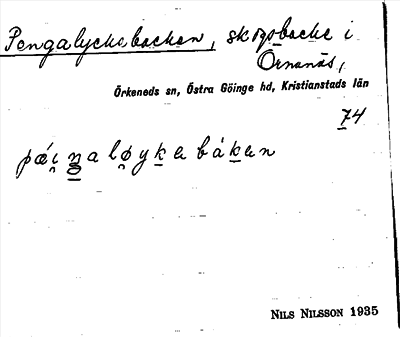 Pengalyckebacken, skogsbacke i
Örnanäs,
Örkeneds sn, Östra Göinge hd, Kristianstads län
74
NILS NILSSON 1935